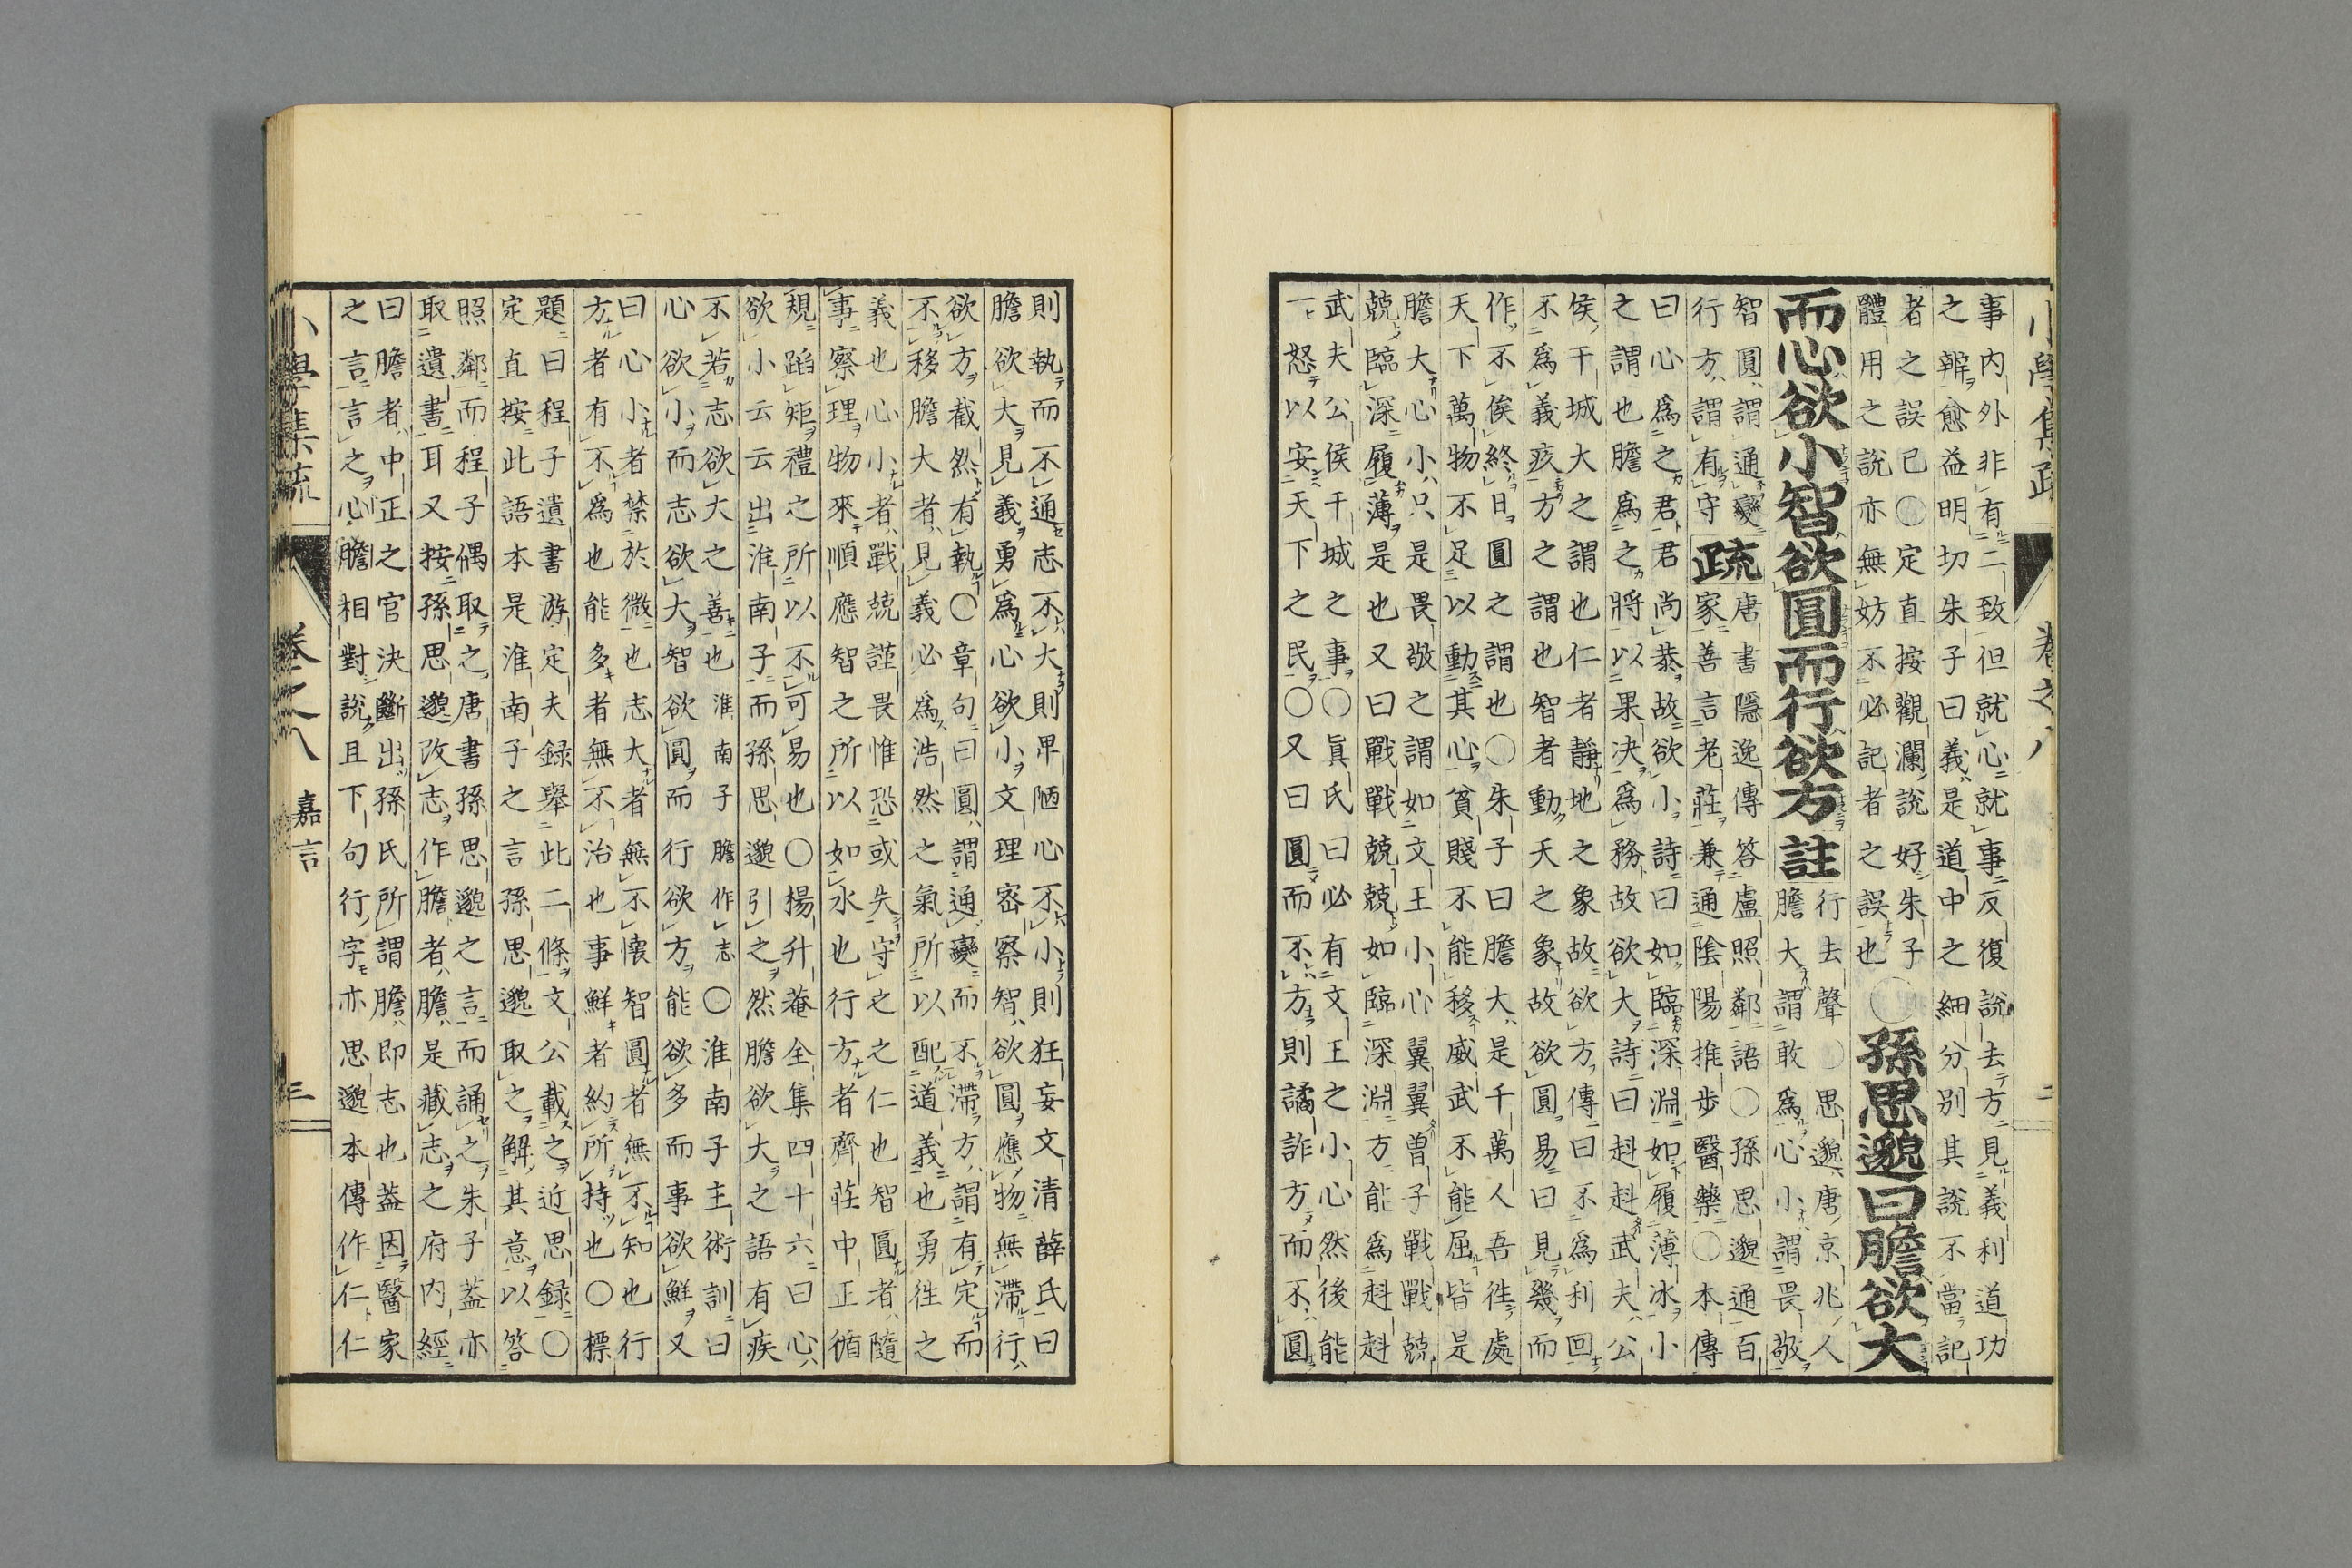 事内外非有二致但就心就事反復說去方見義利道功
之辨愈益明切朱子曰義是道中之細分別其說不當記
者之誤已〇定直按觀瀾說好朱子
體用之說亦無妨不必記者之誤也
〇孫思邈曰膽欲大
而心欲小智欲圓而行欲方註
行去聲〇思邈唐京兆人
膽大謂敢爲心小謂畏敬
智圓謂通變
行方謂有守
疏
唐書隱逸傳答盧照鄰語〇孫思邈通百
家善言老莊兼通陰陽推步醫藥〇本傳
曰心爲之君君尚恭故欲小詩曰如臨深淵如履薄冰小
之謂也膽爲之將以果決爲務故欲大詩曰赳赳武夫公
侯干城大之謂也仁者靜地之象故欲方傳曰不爲利回
不爲義疚方之謂也智者動天之象故欲圓易曰見幾而
作不俟終日圓之謂也〇朱子曰膽大是千萬人吾徃處
天下萬物不足以動其心貧賤不能移威武不能屈皆是
膽大心小只是畏敬之謂如文王小心翼翼曾子戰戰兢
兢臨深履薄是也又曰戰戰兢兢如臨深淵方能爲赳赳
武夫公侯干城之事〇眞氏曰必有文王之小心然後能
一怒以安天下之民〇又曰圓而不方則譎詐方而不圓
則執而不通志不大則卑陋心不小則狂妄文清薛氏曰
膽欲大見義勇爲心欲小文理密察智欲圓應物無滯行
欲方截然有執〇章句曰圓謂通變而不滯方謂有定而
不移膽大者見義必爲浩然之氣所以配道義也勇徃之
義也心小者戰兢謹畏惟恐或失守之之仁也智圓者隨
事察理物來順應智之所以如水也行方者齊莊中正循
規蹈矩禮之所以不可易也〇楊升菴全集四十六曰心
欲小云云出淮南子而孫思邈引之然膽欲大之語有疾
不若志欲大之善也淮南子膽作志〇淮南子主術訓曰
心欲小而志欲大智欲圓而行欲方能欲多而事欲鮮又
曰心小者禁於微也志大者無不懷智圓者無不知也行
方者有不爲也能多者無不治也事鮮者約所持也〇標
題曰程子遺書游定夫録舉此二條文公載之近思録〇
定直按此語本是淮南子之言孫思邈取之解其意以答
照鄰而程子偶取之唐書孫思邈之言而誦之朱子蓋亦
取遺書耳又按孫思邈改志作膽者膽是藏志之府内經
曰膽者中正之官決斷出孫氏所謂膽即志也蓋因醫家
之言言之心膽相對說且下句行字亦思邈本傳作仁仁
小學集疏 卷之八 嘉言 三